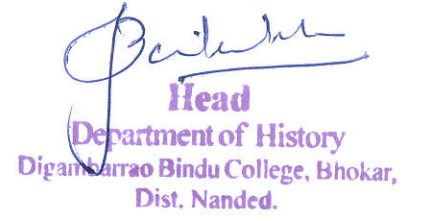 Head
Department of History
Digambarrao Bindu College, Bhokar,
Dist. Nanded.